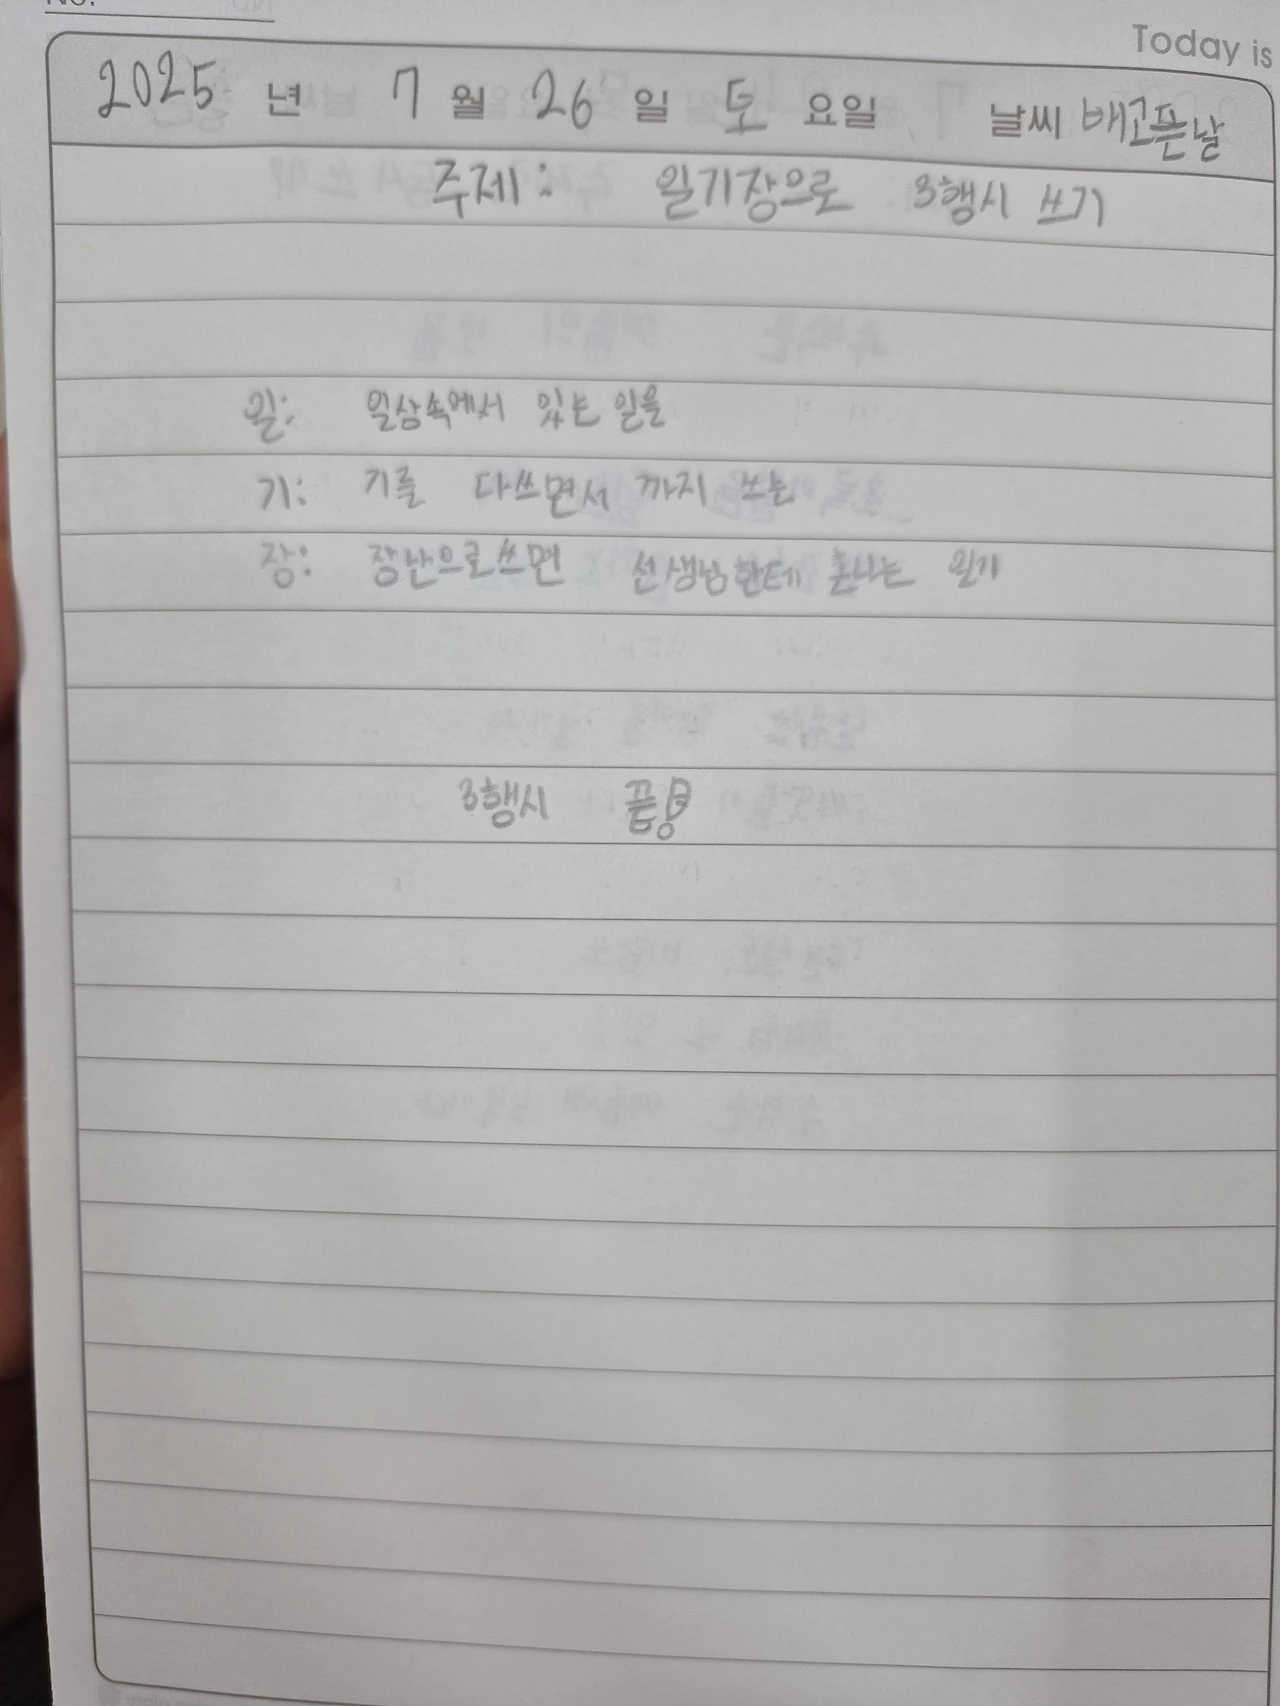 Today is
2025 년 7 월 26 일 토 요일 날씨 배고픈날
주제: 일기장으로 3행시 쓰기
일: 일상속에서 있는 일을
기: 기를 다쓰면서 까지 쓰는
장: 장난으로쓰면 선생님한테 혼나는 일기
3행시 끝!